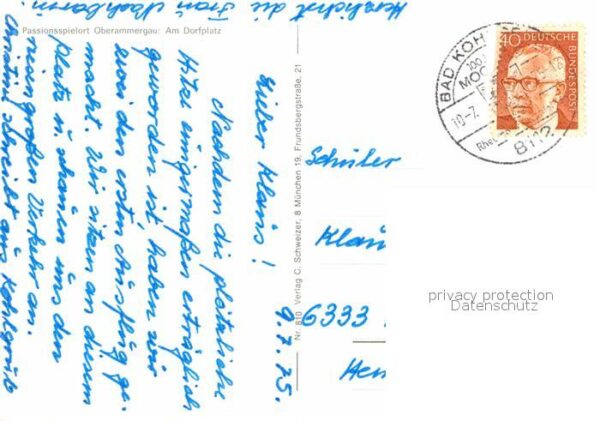 Passionsspielort Oberammergau: Am Dorfplatz
9.7.75.
Lieber Klaus!
Nachdem die plötzliche
Hitze einigermaßen erträglich
geworden ist, haben wir
den ersten Ausflug ge-
macht. Wir sitzen an diesem
Platz u. schauen uns den
riesengroßen Verkehr an.
schreibt aus Kohlgrub
Herzlichst die
Frau Nachbarin.
Nr. 810 Verlag C. Schweizer, 8 München 19, Frundsbergstraße, 21
BAD KOH
MOO
10.-7.
Rheu
8112
40 DEUTSCHE
BUNDESPOST
Schüler
Klau
6333
Hen
privacy protection
Datenschutz